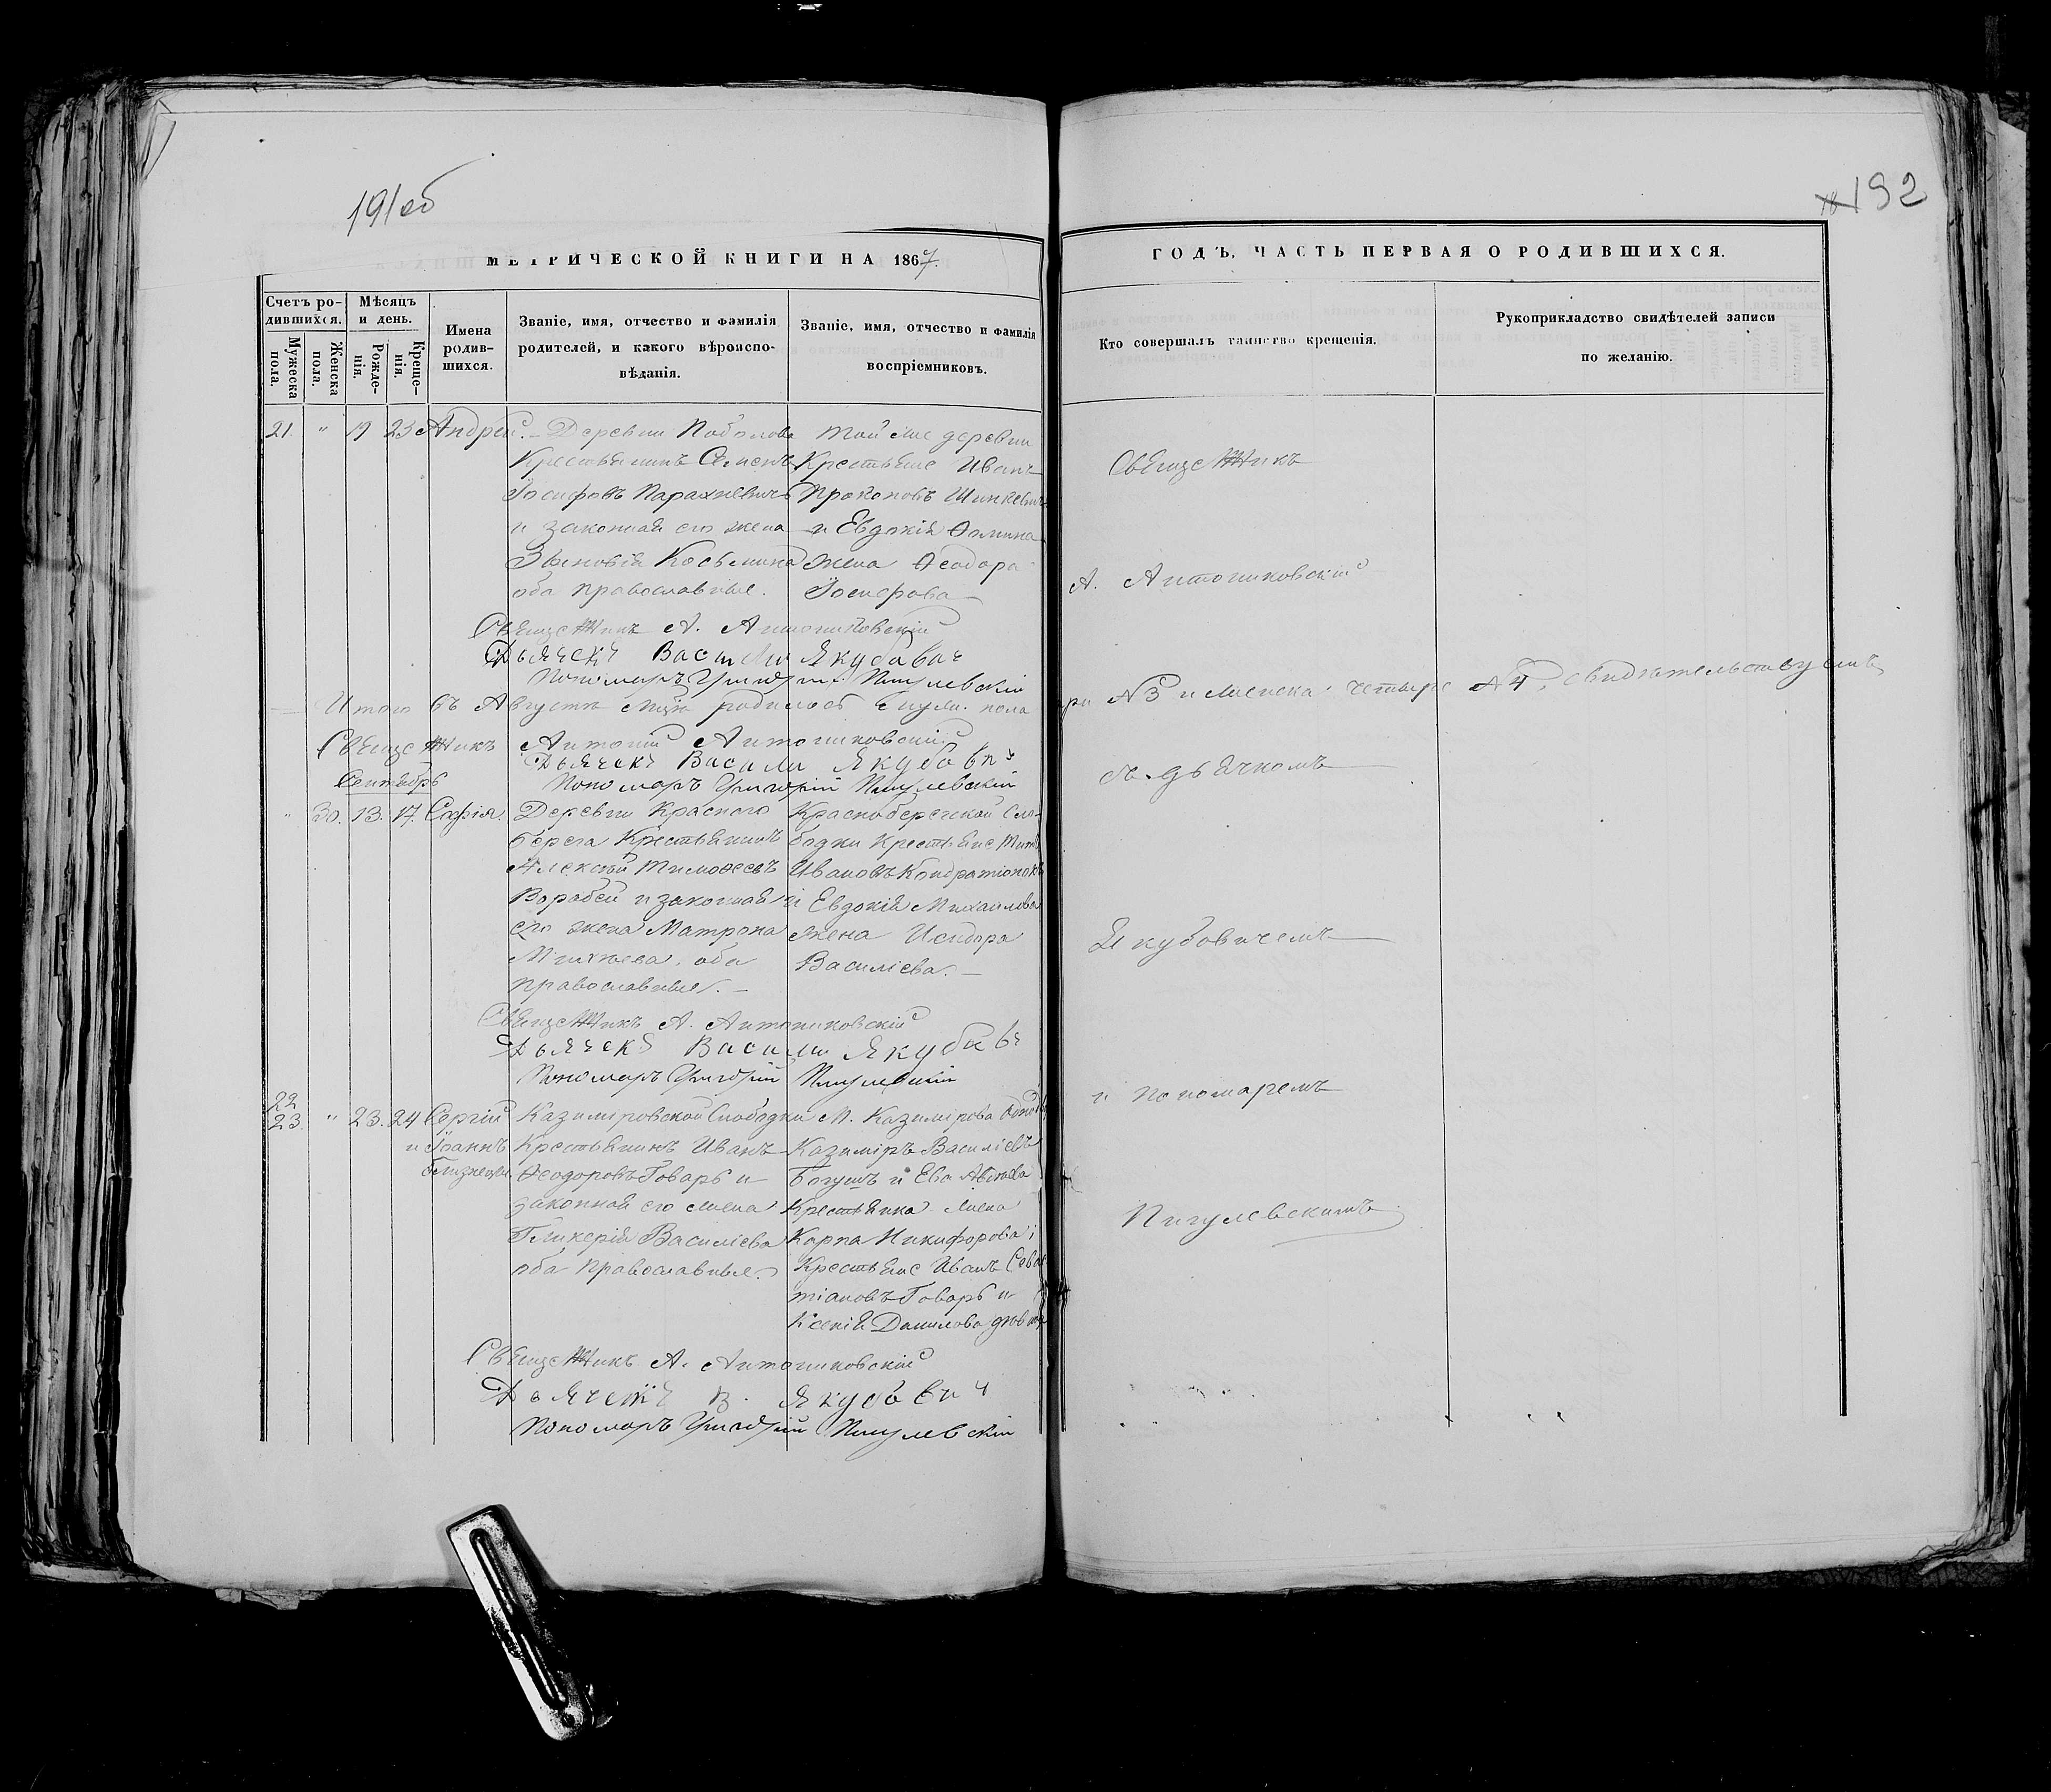 191 об
192
МЕТРИЧЕСКОЙ КНИГИ НА 1867.
ГОДЪ, ЧАСТЬ ПЕРВАЯ О РОДИВШИХСЯ.
Счетъ родившихся.
Мѣсяцъ и день.
Мужеска пола.
Женска пола.
Рожденія.
Крещенія.
Имена родившихся.
Званіе, имя, отчество и фамилія
родителей, и какого вѣроиспо-
вѣданія.
Званіе, имя, отчество и фамилія
воспріемниковъ.
Кто совершалъ таинство крещенія.
Рукоприкладство свидѣтелей записи
по желанію.
21. " 19 23 Андрей.
Деревни Поболова
Крестьянинъ Семенъ
Іосифовъ Парахневичъ
и законная его жена
Зѣновія Косьмина
оба православные.
той же деревни
Крестьяне Иванъ
Прокоповъ Шинкевичъ
и Евдокія Ѳомина
жена Ѳеодора
Іосифова
Священникъ
А. Антониковскій
Священникъ А. Антониковскій
Дьячекъ Василій Якубович
Пономаръ Григорій Пигулевскій
Итого въ Августѣ родилось муж. пола
три №3 и женска четыре №4, свидѣтельствуемъ
Священникъ Антоній Антониковскій
Дьячекъ Василий Якубович
Пономаръ Григорій Пигулевскій
съ дьячкомъ
Сентябрь
" 30. 13. 17. Софія.
Деревни Красного
берега Крестьянинъ
Алексѣй Тимоѳеевъ
Воробей и законная
его жена Матрона
Михѣева, оба
православные.
Краснобережской Сло-
бодки Крестьяне Титъ
Ивановъ Кондратіонокъ
и Евдокія Михаилова
жена Исидора
Василіева.
Якубовичемъ
Священникъ А. Антониковскій
Дьячекъ Василий Якубович
Пономаръ Григорій Пигулевскій
22
23 " 23. 24 Сергій
и Іоаннъ
близнецы
Казиміровской Слободки
Крестьянинъ Иванъ
Ѳеодоровъ Говаръ и
законная его жена
Гликерія Василіева
оба Православные.
М. Казимірова
Казиміръ Василіевъ
Богушъ и Ева
Крестьянка жена
Карпа Никифорова и
Крестьяне Иванъ Сева-
тіановъ Говаръ и
Ксенія Данилова
и пономаремъ
Пигулевскимъ
Священникъ А. Антониковскій
Дьячекъ В. Якубович
Пономаръ Григорій Пигулевскій